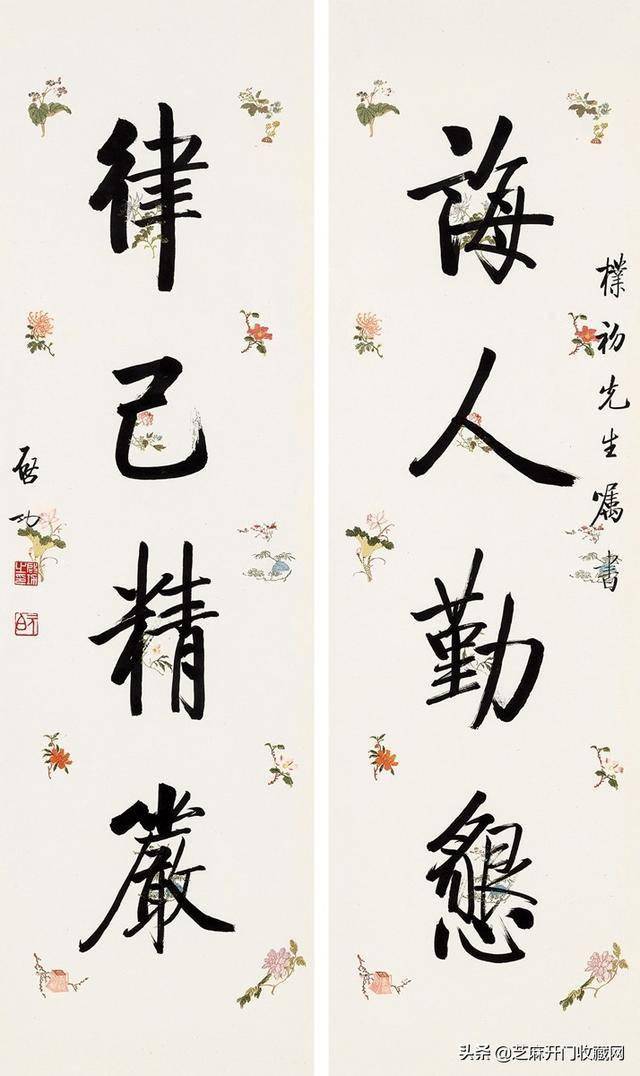 樸初先生嘱書
誨人勤懇
律己精嚴
啓功
头条 @芝麻开门收藏网